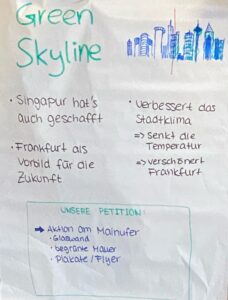 Green
Skyline
• Singapur hat's
auch geschafft
• Frankfurt als
Vorbild für die
Zukunft
• Verbessert das
Stadtklima
=> Senkt die
Temperatur
=> verschönert
Frankfurt
UNSERE PETITION:
→ Aktion am Mainufer
• Glaswand
• begrünte Mauer
• Plakate/Flyer